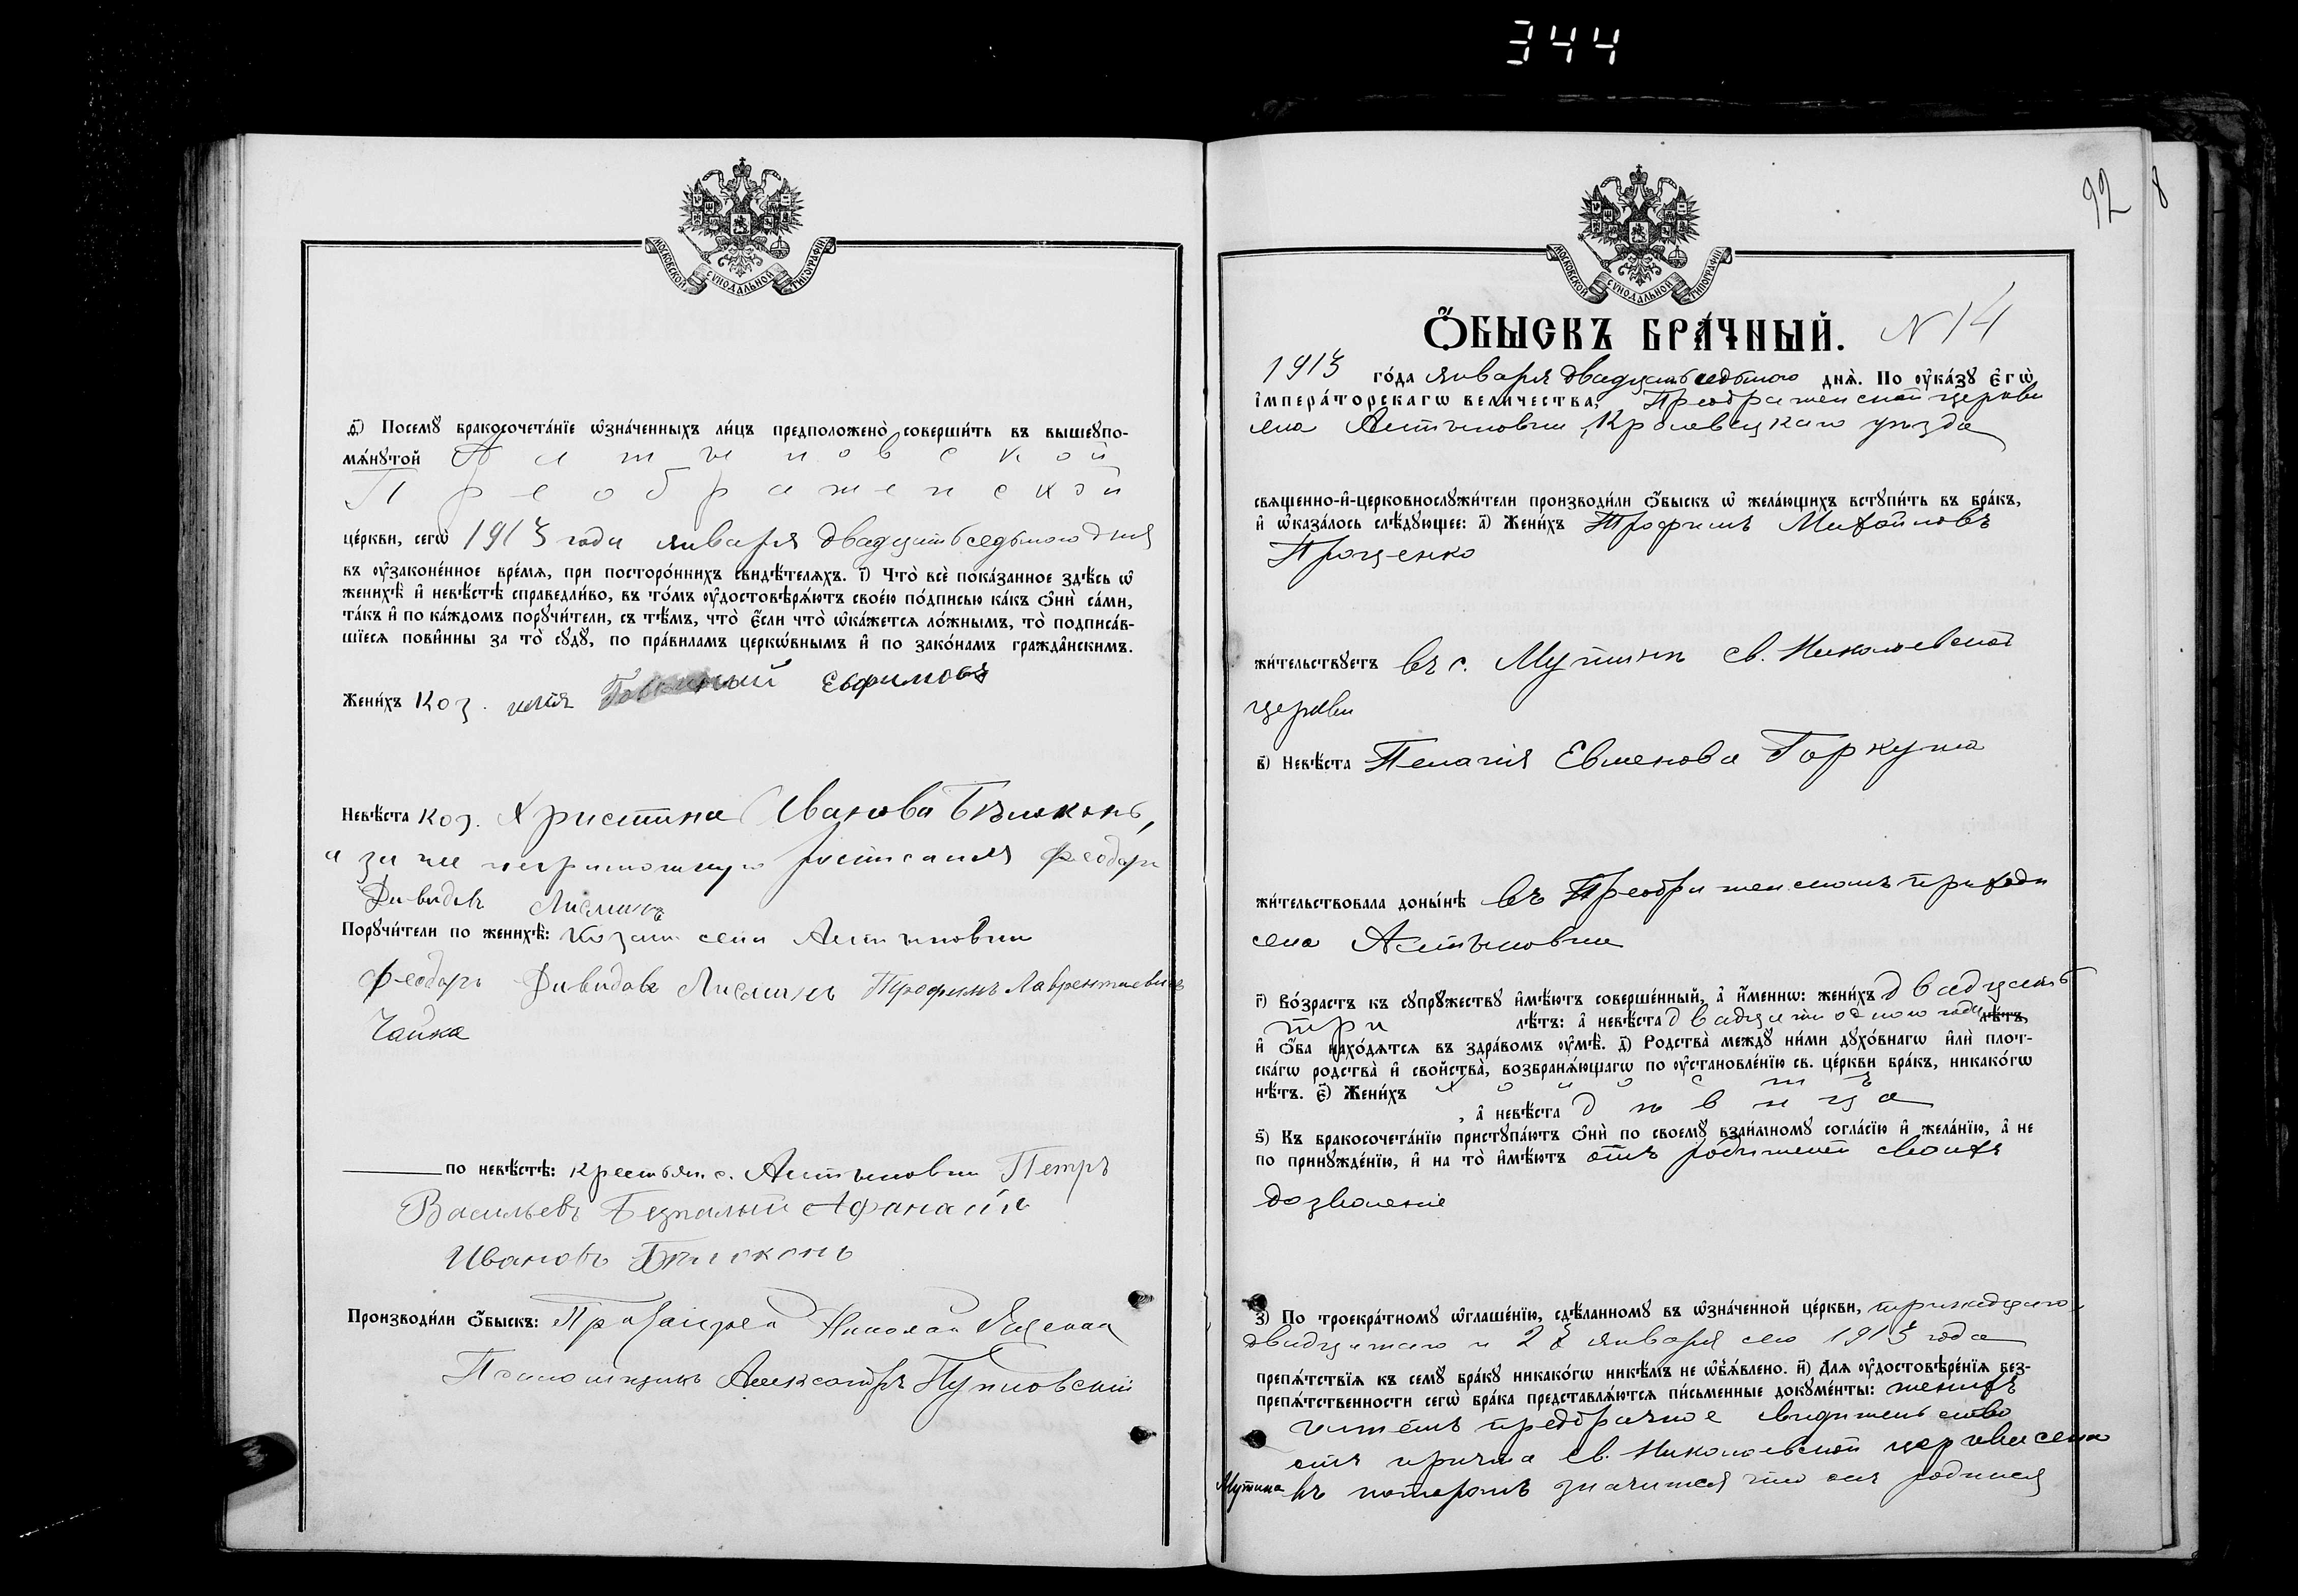 344
МОСКОВСКОЙ СѴНОДАЛЬНОЙ ТИПОГРАФІИ
ѳ҃) Посемꙋ бракосочета́нїе ѡ҆зна́ченныхъ ли́цъ предположено̀ соверши́ть въ вышеꙋпо-
мѧ́нꙋтой Алтыновской
Преображенской
це́ркви, сегѡ̀ 1913 года января двадцать седьмого дня
въ ᲂу҆законе́нное вре́мѧ, при посторо́ннихъ свидѣ́телѧхъ. і҃) Что̀ всѐ пока́занное здѣ́сь ѡ҆
женихѣ̀ и҆ невѣ́стѣ справедли́во, въ то́мъ ᲂу҆достовѣрѧ́ютъ свое́ю по́дписью ка́къ ѻ҆нѝ са́ми,
та́къ и҆ по ка́ждомъ порꙋчи́тели, съ тѣ́мъ, что̀ є҆́сли что̀ ѡ҆ка́жетсѧ ло́жнымъ, то̀ подписа́в-
шїесѧ пови́нны за то̀ сꙋдꙋ̀, по пра́виламъ церкѡ́внымъ и҆ по зако́намъ гражда́нскимъ.
Жени́хъ Коз. Ефимовъ
Невѣ́ста коз. Христина Иванова Бѣлоконь,
а за нее неграмотную росписался Феодоръ
Давидовъ
Порꙋчи́тели по женихѣ̀: козаки села Алтыновки
Феодоръ Давидовъ Трофимъ Лаврентіевичъ
Чайка
по невѣ́стѣ: крестьян. с. Алтыновки Петръ
Васильевъ Безпалый Афанасій
Ивановъ Бѣлоконь
Производи́ли ѻ҆́быскъ: Протоіерей Николай Яценко
Псаломщикъ Александръ
92 8
МОСКОВСКОЙ СѴНОДАЛЬНОЙ ТИПОГРАФІИ
Ѻ҆́БЫСКЪ БРА́ЧНЫЙ. N 14
1913 го́да января двадцать седьмого днѧ̀. По ᲂу҆ка́зꙋ Є҆гѡ̀
і҆мпера́торскагѡ вели́чества, Преображенской церкви
села Алтыновки, Кролевецкаго уѣзда
сщ҃енно-и҆-церковнослꙋжи́тели производи́ли ѻ҆́быскъ ѡ҆ жела́ющихъ встꙋпи́ть въ бра́къ,
и҆ ѡ҆каза́лось слѣ́дꙋющее: а҃) Жени́хъ Трофимъ Михайловъ
Проценко
жи́тельствꙋетъ въ с. Мутинѣ св. Николаевской
церкви
в҃) Невѣ́ста Пелагія Евменова Горкуша
жи́тельствовала доны́нѣ въ Преображенскомъ приходѣ
села Алтыновки
г҃) Во́зрастъ къ сꙋпрꙋ́жествꙋ и҆мѣ́ютъ соверше́нный, а҆ и҆́меннѡ: жени́хъ двадцать
три лѣ́тъ: а҆ невѣ́ста двадцати одного года лѣ́тъ,
и҆ ѻ҆́ба нахо́дѧтсѧ въ здра́вомъ ᲂу҆мѣ̀. д҃) Родства̀ междꙋ̀ ни́ми дꙋхо́внагѡ и҆лѝ плот-
ска́гѡ родства̀ и҆ сво́йства̀, возбранѧ́ющагѡ по ᲂу҆становле́нїю св. це́ркви бра́къ, никако́гѡ
нѣ́тъ. є҃) Жени́хъ холостъ
, а҆ невѣ́ста дѣвица
ѕ҃) Къ бракосочета́нїю пристꙋпа́ютъ ѻ҆нѝ по своемꙋ̀ взаи́мномꙋ согла́сїю и҆ жела́нїю, а҆ не
по принꙋжде́нїю, и҆ на то̀ и҆мѣ́ютъ отъ родителей своихъ
дозволеніе
з҃) По троекра́тномꙋ ѡ҆глаше́нїю, сдѣ́ланномꙋ въ ѡ҆зна́ченной це́ркви, тринадцатаго
двадцатаго и января сего 1913 года
препѧ́тствїѧ къ семꙋ̀ бра́кꙋ никако́гѡ никѣ́мъ не ѡ҆б̾ѧ́влено. и҃) Длѧ ᲂу҆достовѣре́нїѧ без-
препѧ́тственности сегѡ̀ бра́ка представлѧ́ютсѧ пи́сьменные докꙋме́нты: женихъ
имѣетъ предбрачное свидѣтельство
отъ причта св. Николаевской церкви села
Мутина въ которомъ значится что онъ родился